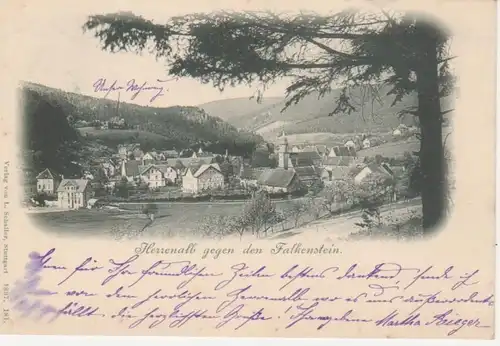 Unsere Wohnung
Herrenalb gegen den Falkenstein.
Ihnen für Ihre freundlichen Zeilen bestens dankend, sende ich
von dem herrlichen Herrenalb wo es uns außerordentlich
gefällt die herzlichsten Grüße! Ihre Martha Krieger
Verlag von L. Schaller, Stuttgart 1897.